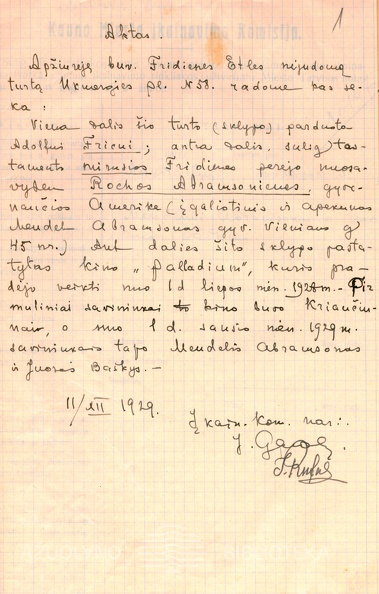 1
Aktas.
Apžiurėję buv. Fridienės Etles nejudomą
turtą Ukmergės pl. N 58. radome kas se-
ka:
Viena dalis šio turto (sklypo) parduota
Adolfui Fricui; antra dalis, sulig tes-
tamento mirusios Fridienės perėjo nuosa-
vybėn Rochos Abramsonienės, gyve-
nančios Amerike (įgaliotinis ir apekunas
Mendel Abramsonas gyv. Vilniaus g
45 nr.) Ant dalies šito sklypo pasta-
tytas kino „Palladium", kuris pra-
dėjo veikti nuo 1 d liepos mėn. 1928 m. - Pir
mutiniai savininkai kino buvo
o nuo 1 d. sausio mėn. 1929 m.
savininkais tapo Mendelis Abramsonas
ir Juozas Baškys. -
11/XII 1929.
Įkain. kom. nar.:
J.